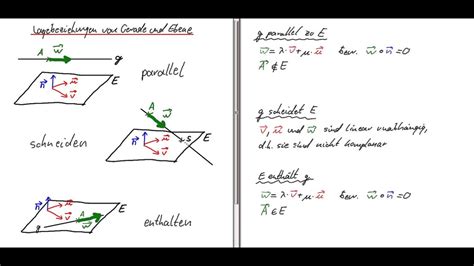 Lagebeziehungen von Gerade und Ebene
A w⃗ g
n⃗ u⃗ v⃗ E
parallel
A w⃗
n⃗ u⃗ v⃗ S E
schneiden
n⃗ u⃗ v⃗ E
g A w⃗
enthalten
g parallel zu E
w⃗ = λ·v⃗ + μ·u⃗ bzw. w⃗ ∘ n⃗ = 0
A⃗ ∉ E
g schneidet E
v⃗, u⃗ und w⃗ sind linear unabhängig,
d.h. sie sind nicht komplanar
E enthält g
w⃗ = λ·v⃗ + μ·u⃗ bzw. w⃗ ∘ n⃗ = 0
A⃗ ∈ E